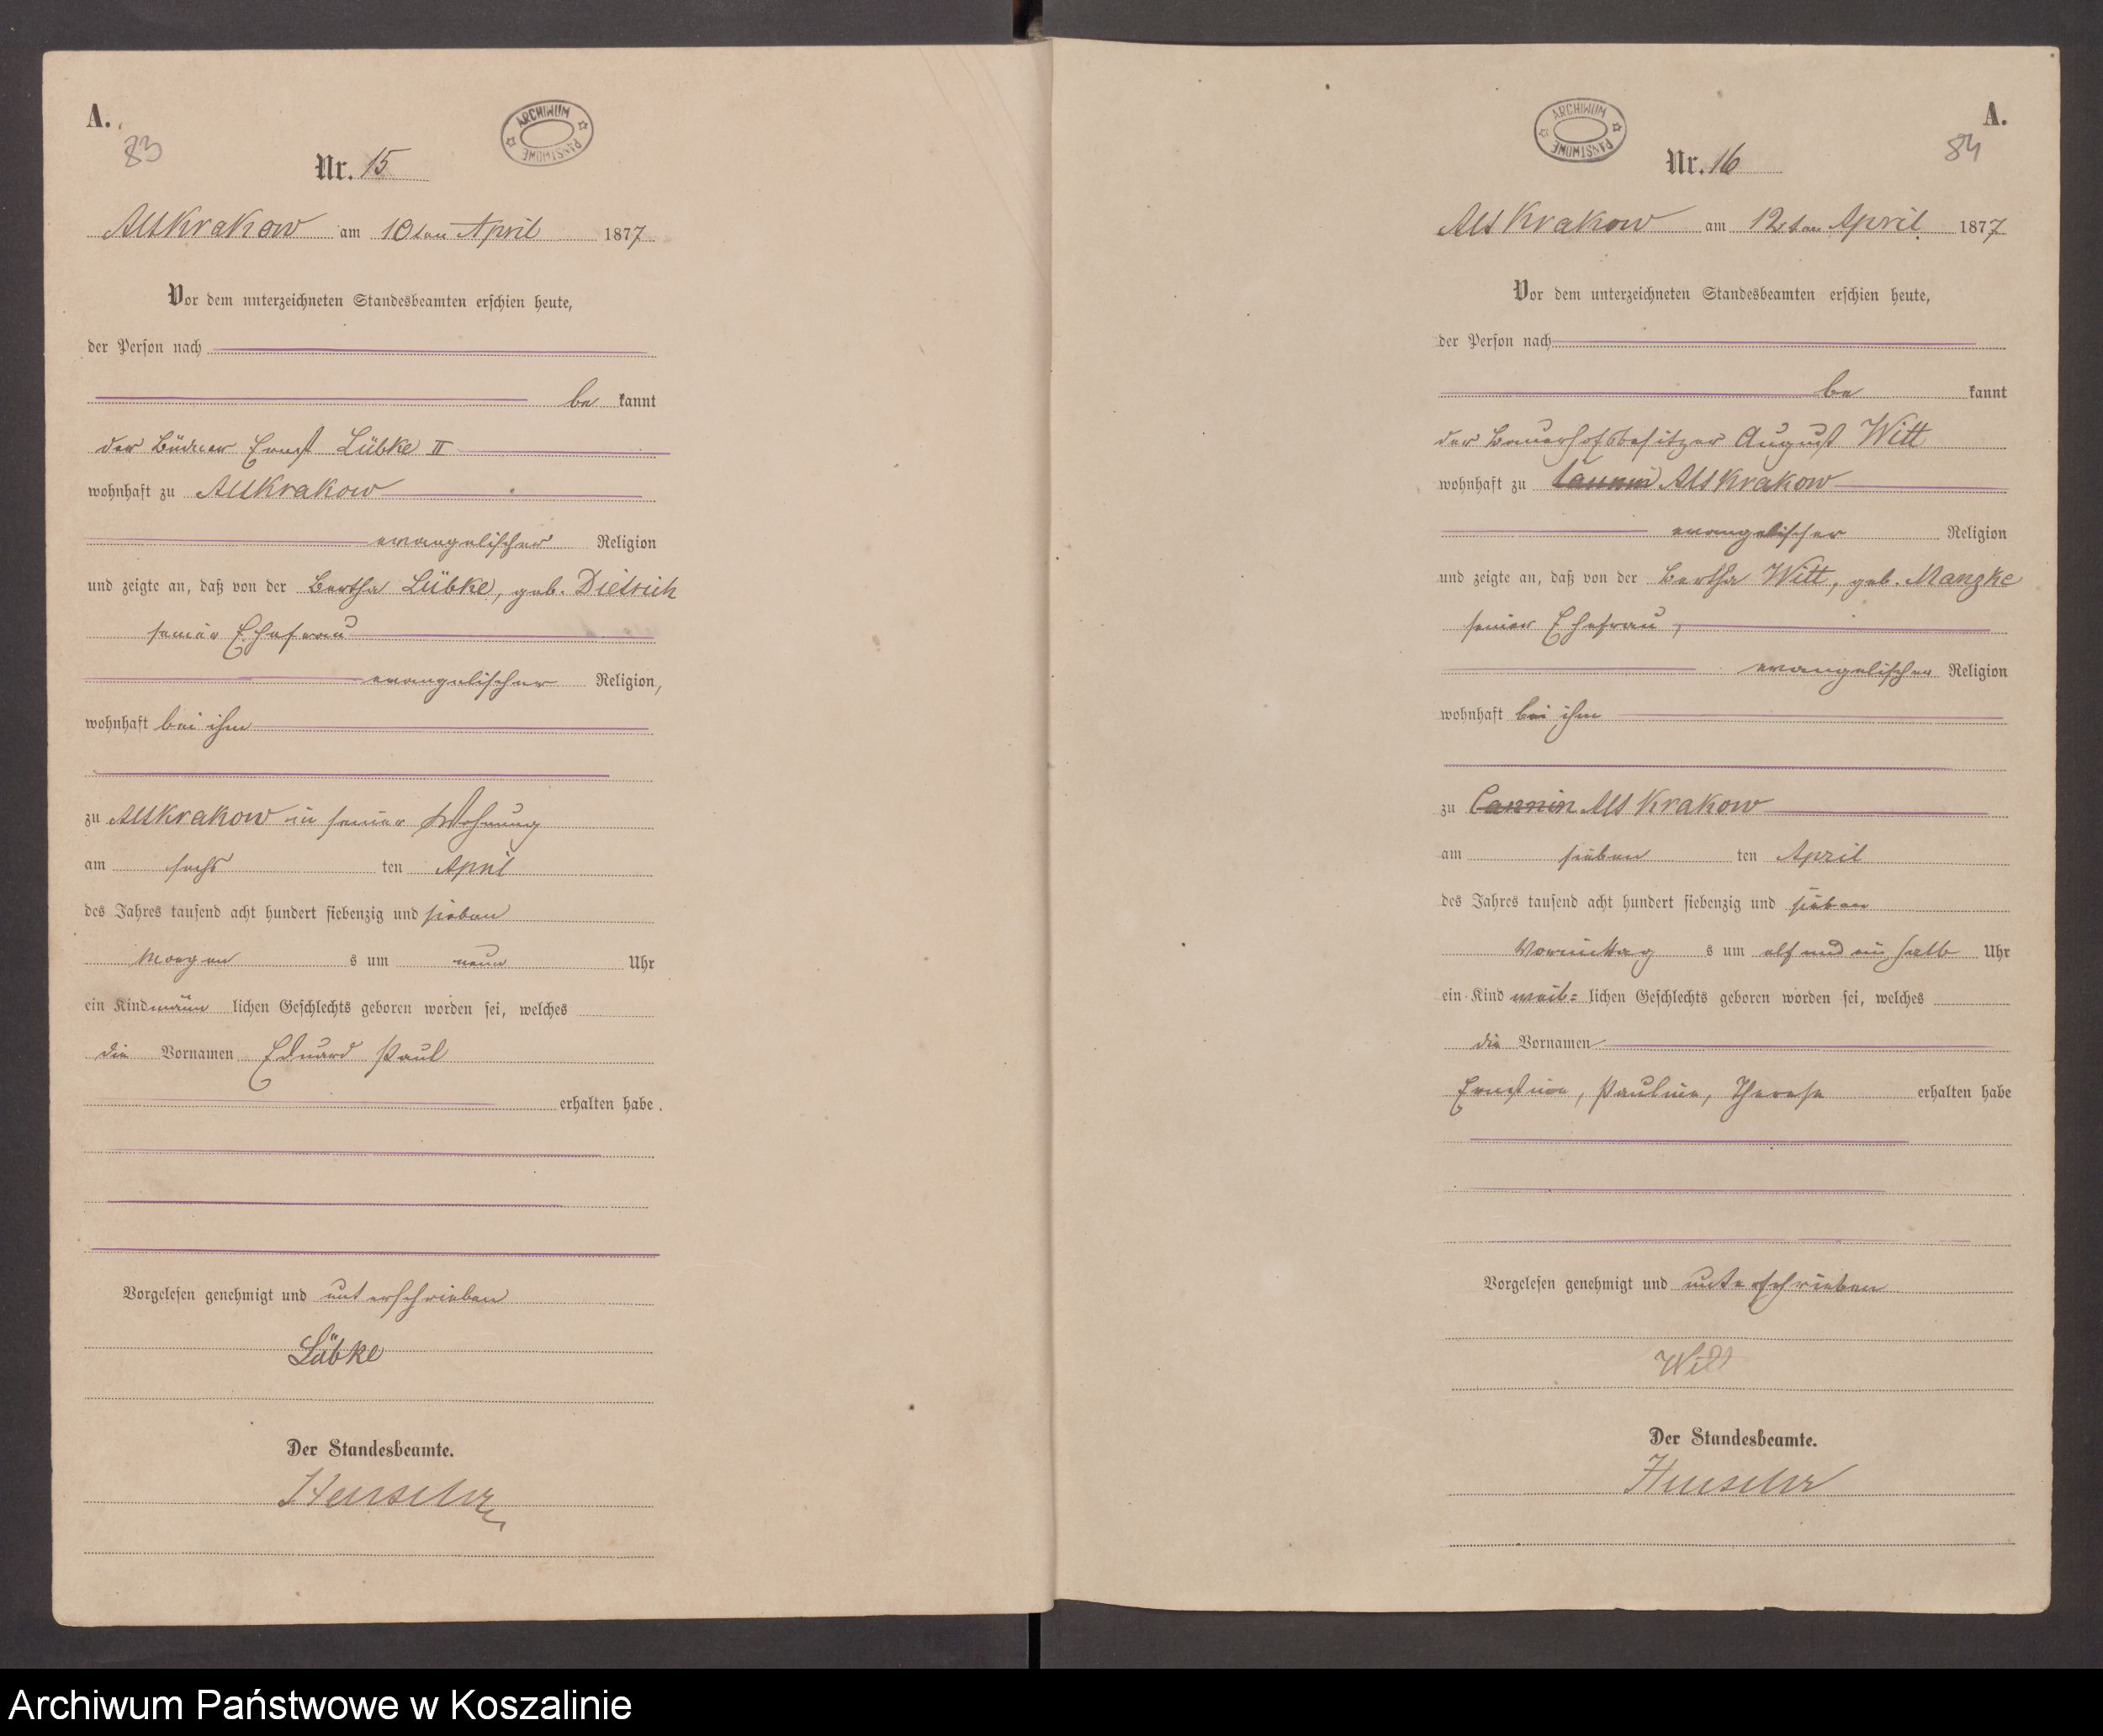 A.
83
ARCHIWUM PAŃSTWOWE
Nr. 15
Altkrakow am 10ten April 1877
Vor dem unterzeichneten Standesbeamten erschien heute,
der Person nach
be kannt
der Büdner Ernst Lübke II
wohnhaft zu Altkrakow
evangelischer Religion
und zeigte an, daß von der Bertha Lübke, geb. Dietrich
seiner Ehefrau
evangelischer Religion,
wohnhaft bei ihm
zu Altkrakow in seiner Wohnung
am sechs ten April
des Jahres tausend acht hundert siebenzig und sieben
Morgen s um neun Uhr
ein Kind männ lichen Geschlechts geboren worden sei, welches
die Vornamen Eduard Paul
erhalten habe.
Vorgelesen genehmigt und unterschrieben
Lübke
Der Standesbeamte.
A.
84
ARCHIWUM PAŃSTWOWE
Nr. 16
Alt Krakow am 12ten April 1877
Vor dem unterzeichneten Standesbeamten erschien heute,
der Person nach
be kannt
der Bauerhofsbesitzer August Witt
wohnhaft zu Cannin Alt Krakow
evangelischer Religion
und zeigte an, daß von der Bertha Witt, geb. Manzke
seiner Ehefrau,
evangelischer Religion
wohnhaft bei ihm
zu Cannin Alt Krakow
am sieben ten April
des Jahres tausend acht hundert siebenzig und sieben
Vormittag s um elf und ein halb Uhr
ein Kind weib= lichen Geschlechts geboren worden sei, welches
die Vornamen
Ernstine, Pauline, Therese erhalten habe
Vorgelesen genehmigt und unterschrieben
Witt
Der Standesbeamte.
Archiwum Państwowe w Koszalinie